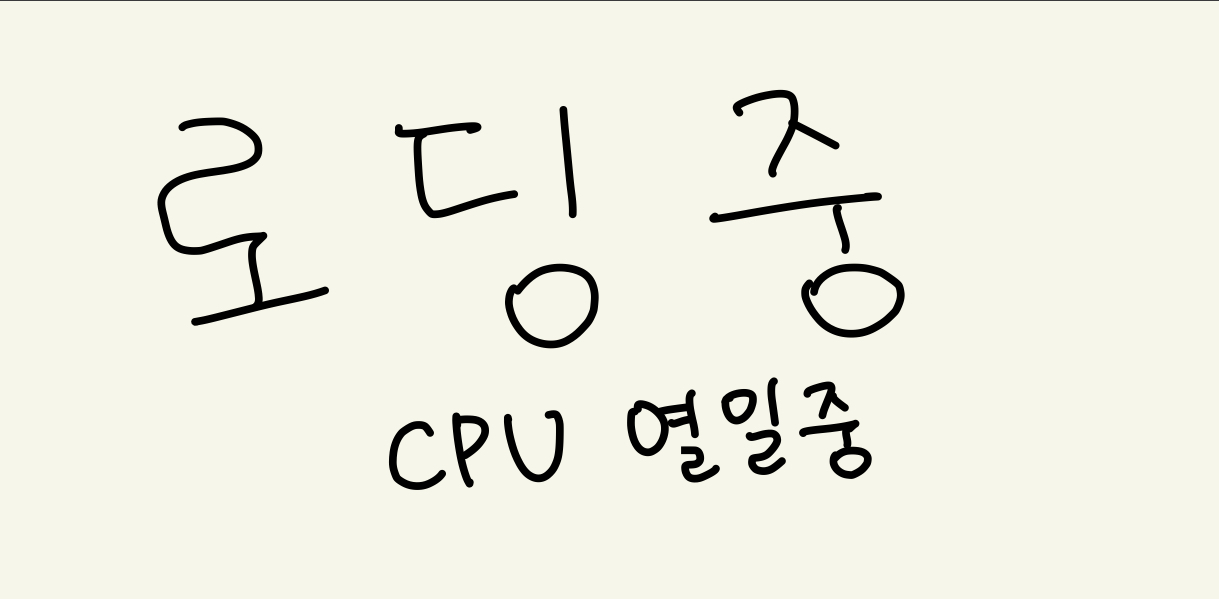 로딩중
CPU 열일중